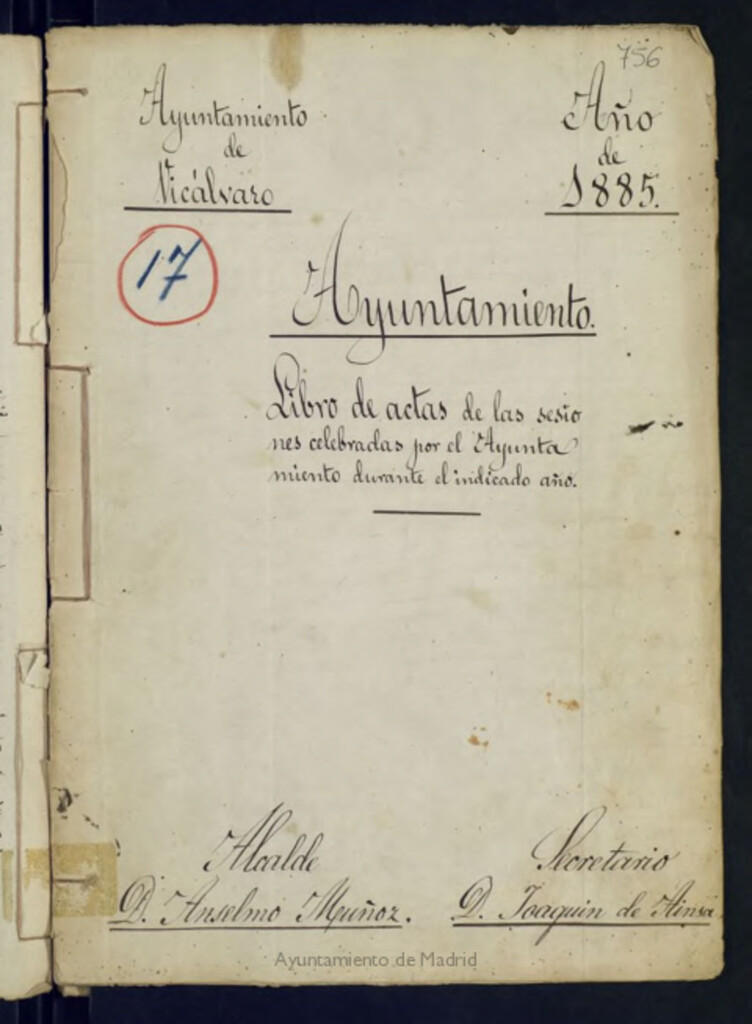 756
Ayuntamiento
de
Vicálvaro
Año
de
1885.
17
Ayuntamiento.
Libro de actas de las sesio
nes celebradas por el Ayunta
miento durante el indicado año.
Alcalde
D. Anselmo Muñoz.
Secretario
D. Joaquin de Ainsa
Ayuntamiento de Madrid